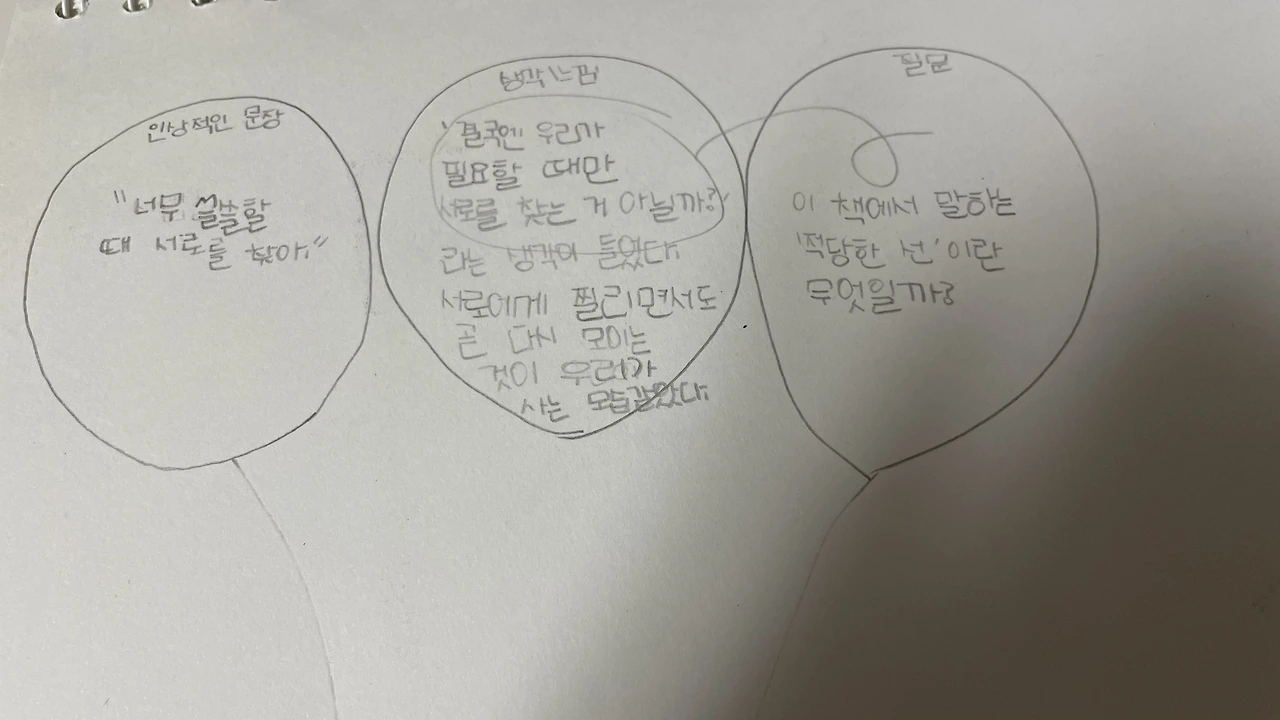 인상적인 문장
"너무 쓸쓸할
때 서로를 찾아."
생각·느낌
'결국엔 우리가
필요할 때만
서로를 찾는 거 아닐까?'
라는 생각이 들었다.
서로에게 찔리면서도
곧 다시 모이는
것이 우리가
사는 모습같았다.
질문
이 책에서 말하는
'적당한 선'이란
무엇일까?